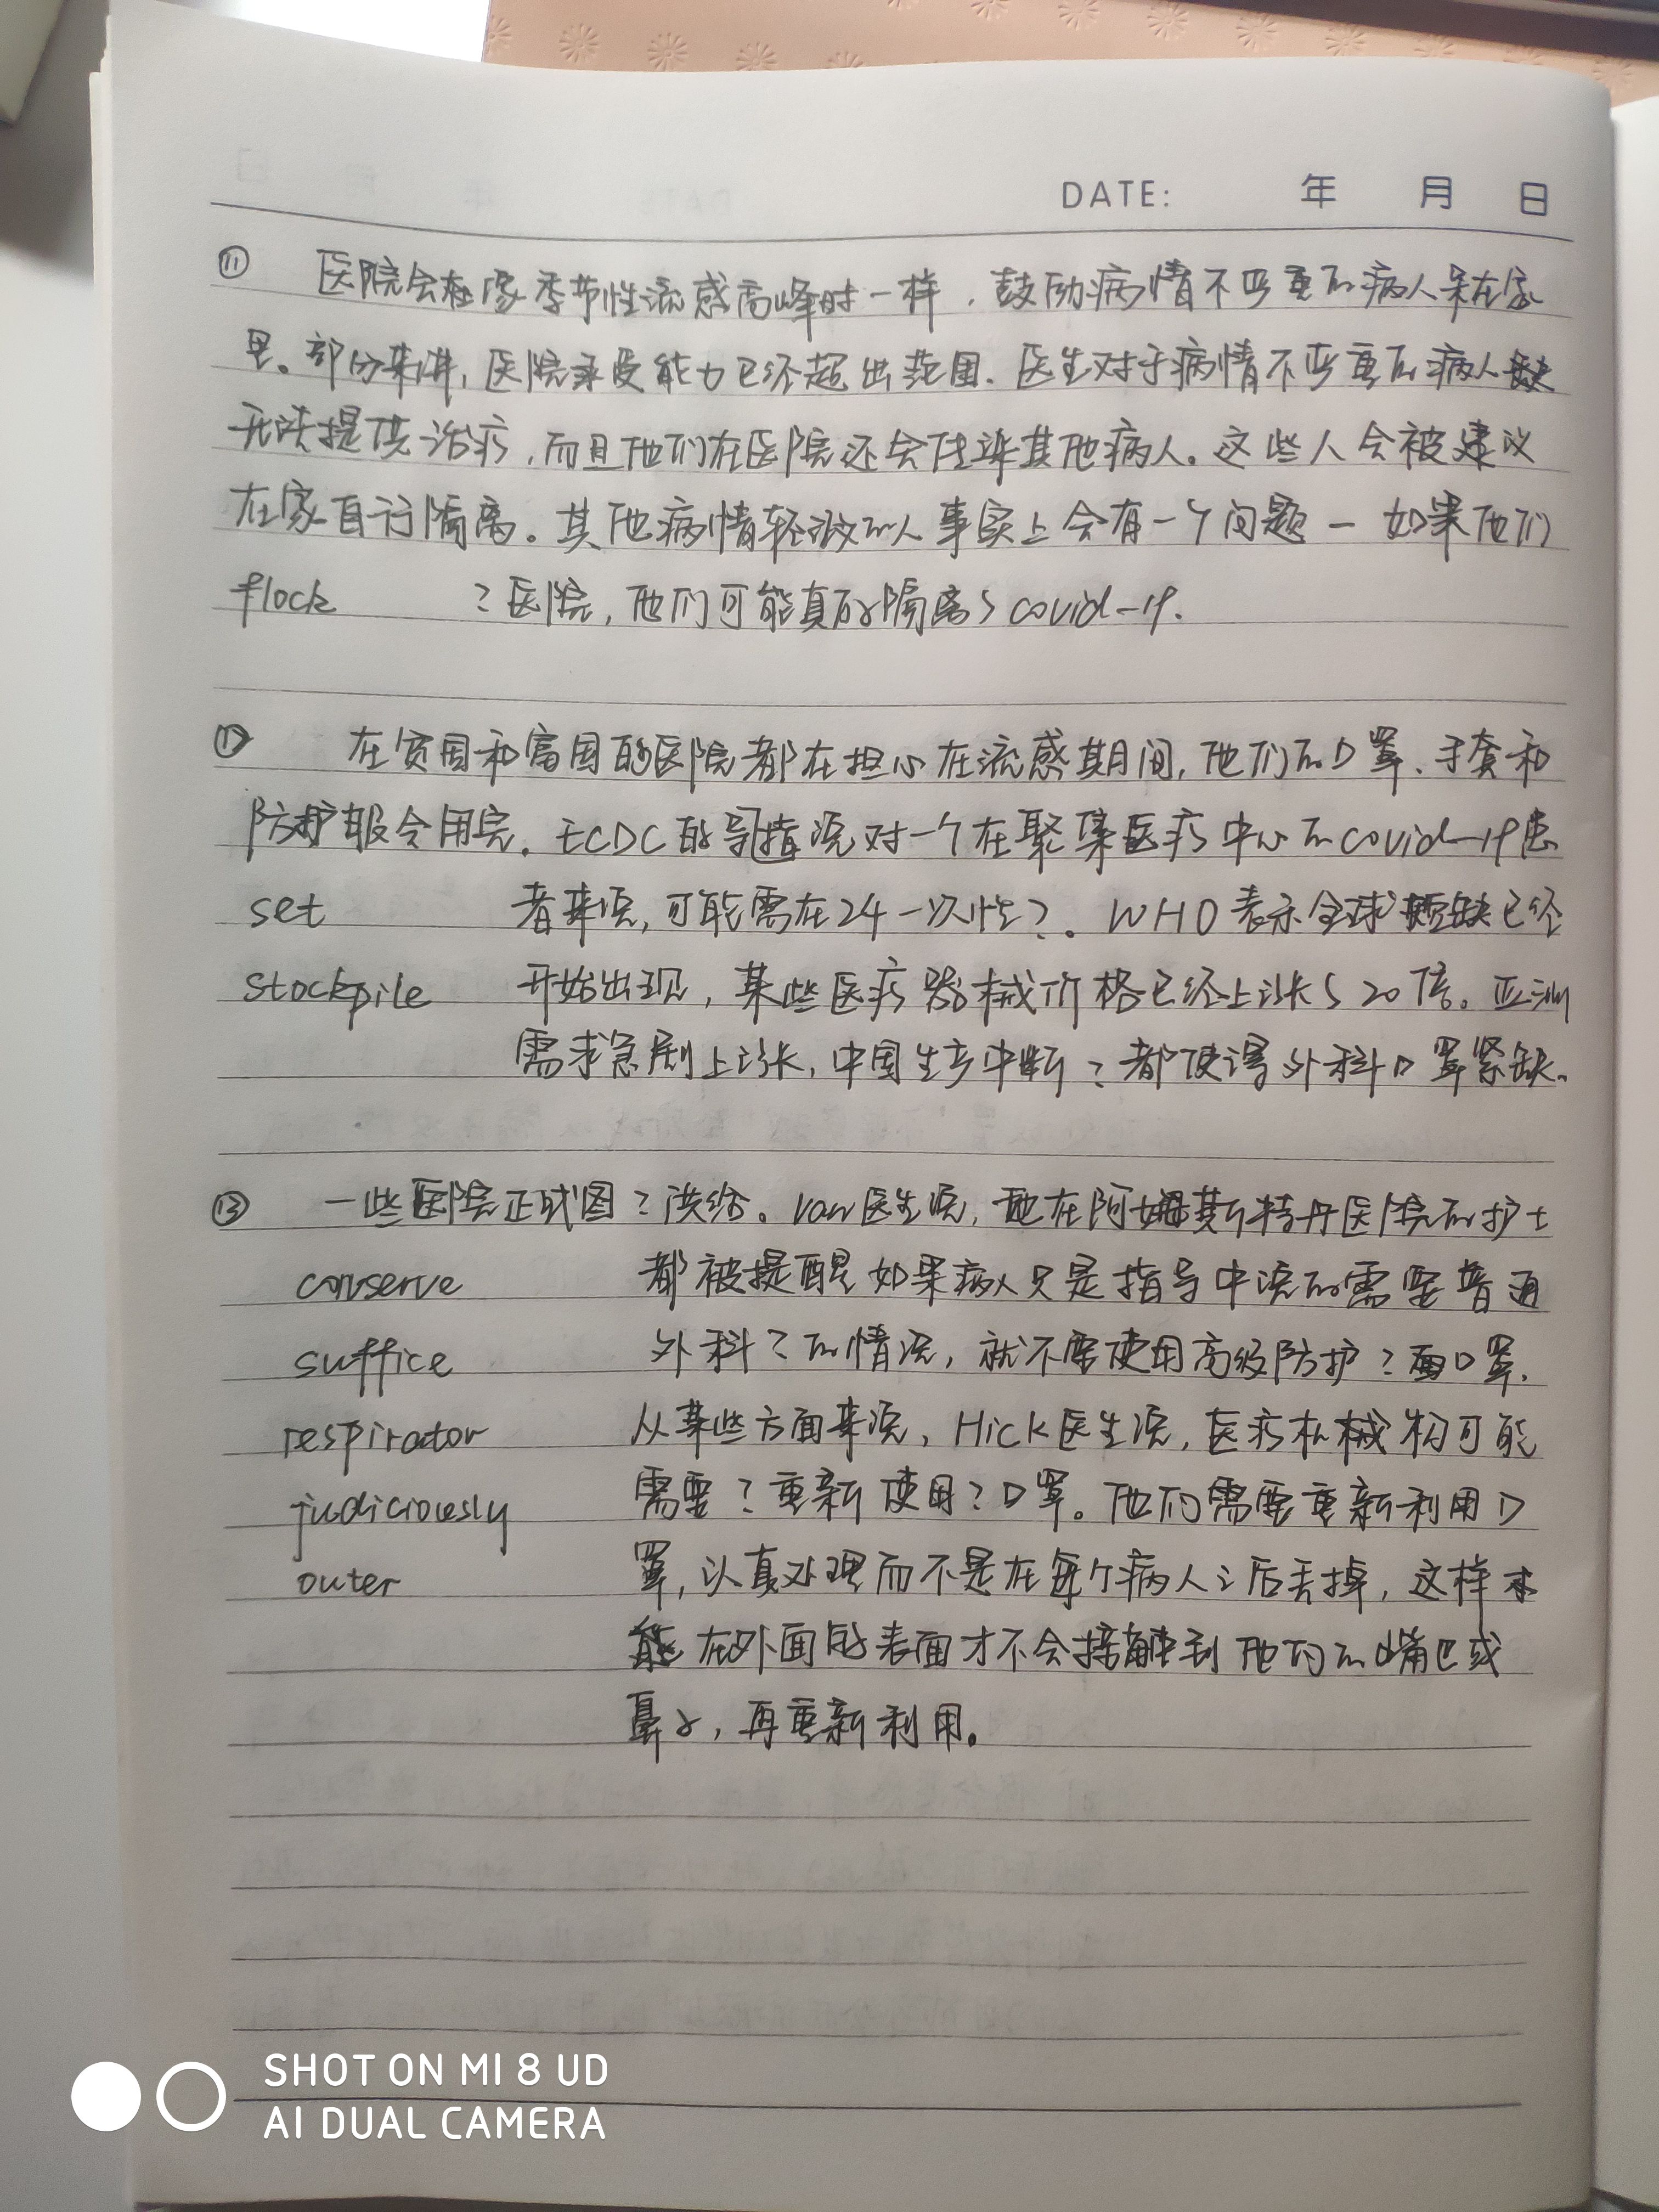 DATE: 年 月 日
⑪ 医院会在像季节性流感高峰时一样，鼓励病情不严重的病人呆在家
里。部分来讲，医院承受能力已经超出范围。医生对于病情不严重的病人
无法提供治疗，而且他们在医院还会传染其他病人。这些人会被建议
在家自行隔离。其他病情轻微的人事实上会有一个问题 — 如果他们
flock ？医院，他们可能真的隔离了covid-19.
⑫ 在贫困和富国的医院都在担心在流感期间，他们的口罩、手套和
防护服会用完。ECDC的导指说对一个在聚集医疗中心的covid-19患
set 者来说，可能需在24一次性？。WHO表示全球短缺已经
stockpile 开始出现，某些医疗器械价格已经上涨了20倍。亚洲
需求急剧上涨，中国生产中断？都使得外科口罩紧缺。
⑬ 一些医院正试图？供给。Van医生说，她在阿姆斯特丹医院的护士
conserve 都被提醒如果病人只是指导中说的需要普通
suffice 外科？的情况，就不需使用高级防护？面口罩.
respirator 从某些方面来说，Hick医生说，医疗机械构可能
judiciously 需要？重新使用？口罩。他们需要重新利用口
outer 罩，认真处理而不是在每个病人之后丢掉，这样
能在外面的表面才不会接触到他们的嘴巴或
鼻子，再重新利用。
SHOT ON MI 8 UD
AI DUAL CAMERA